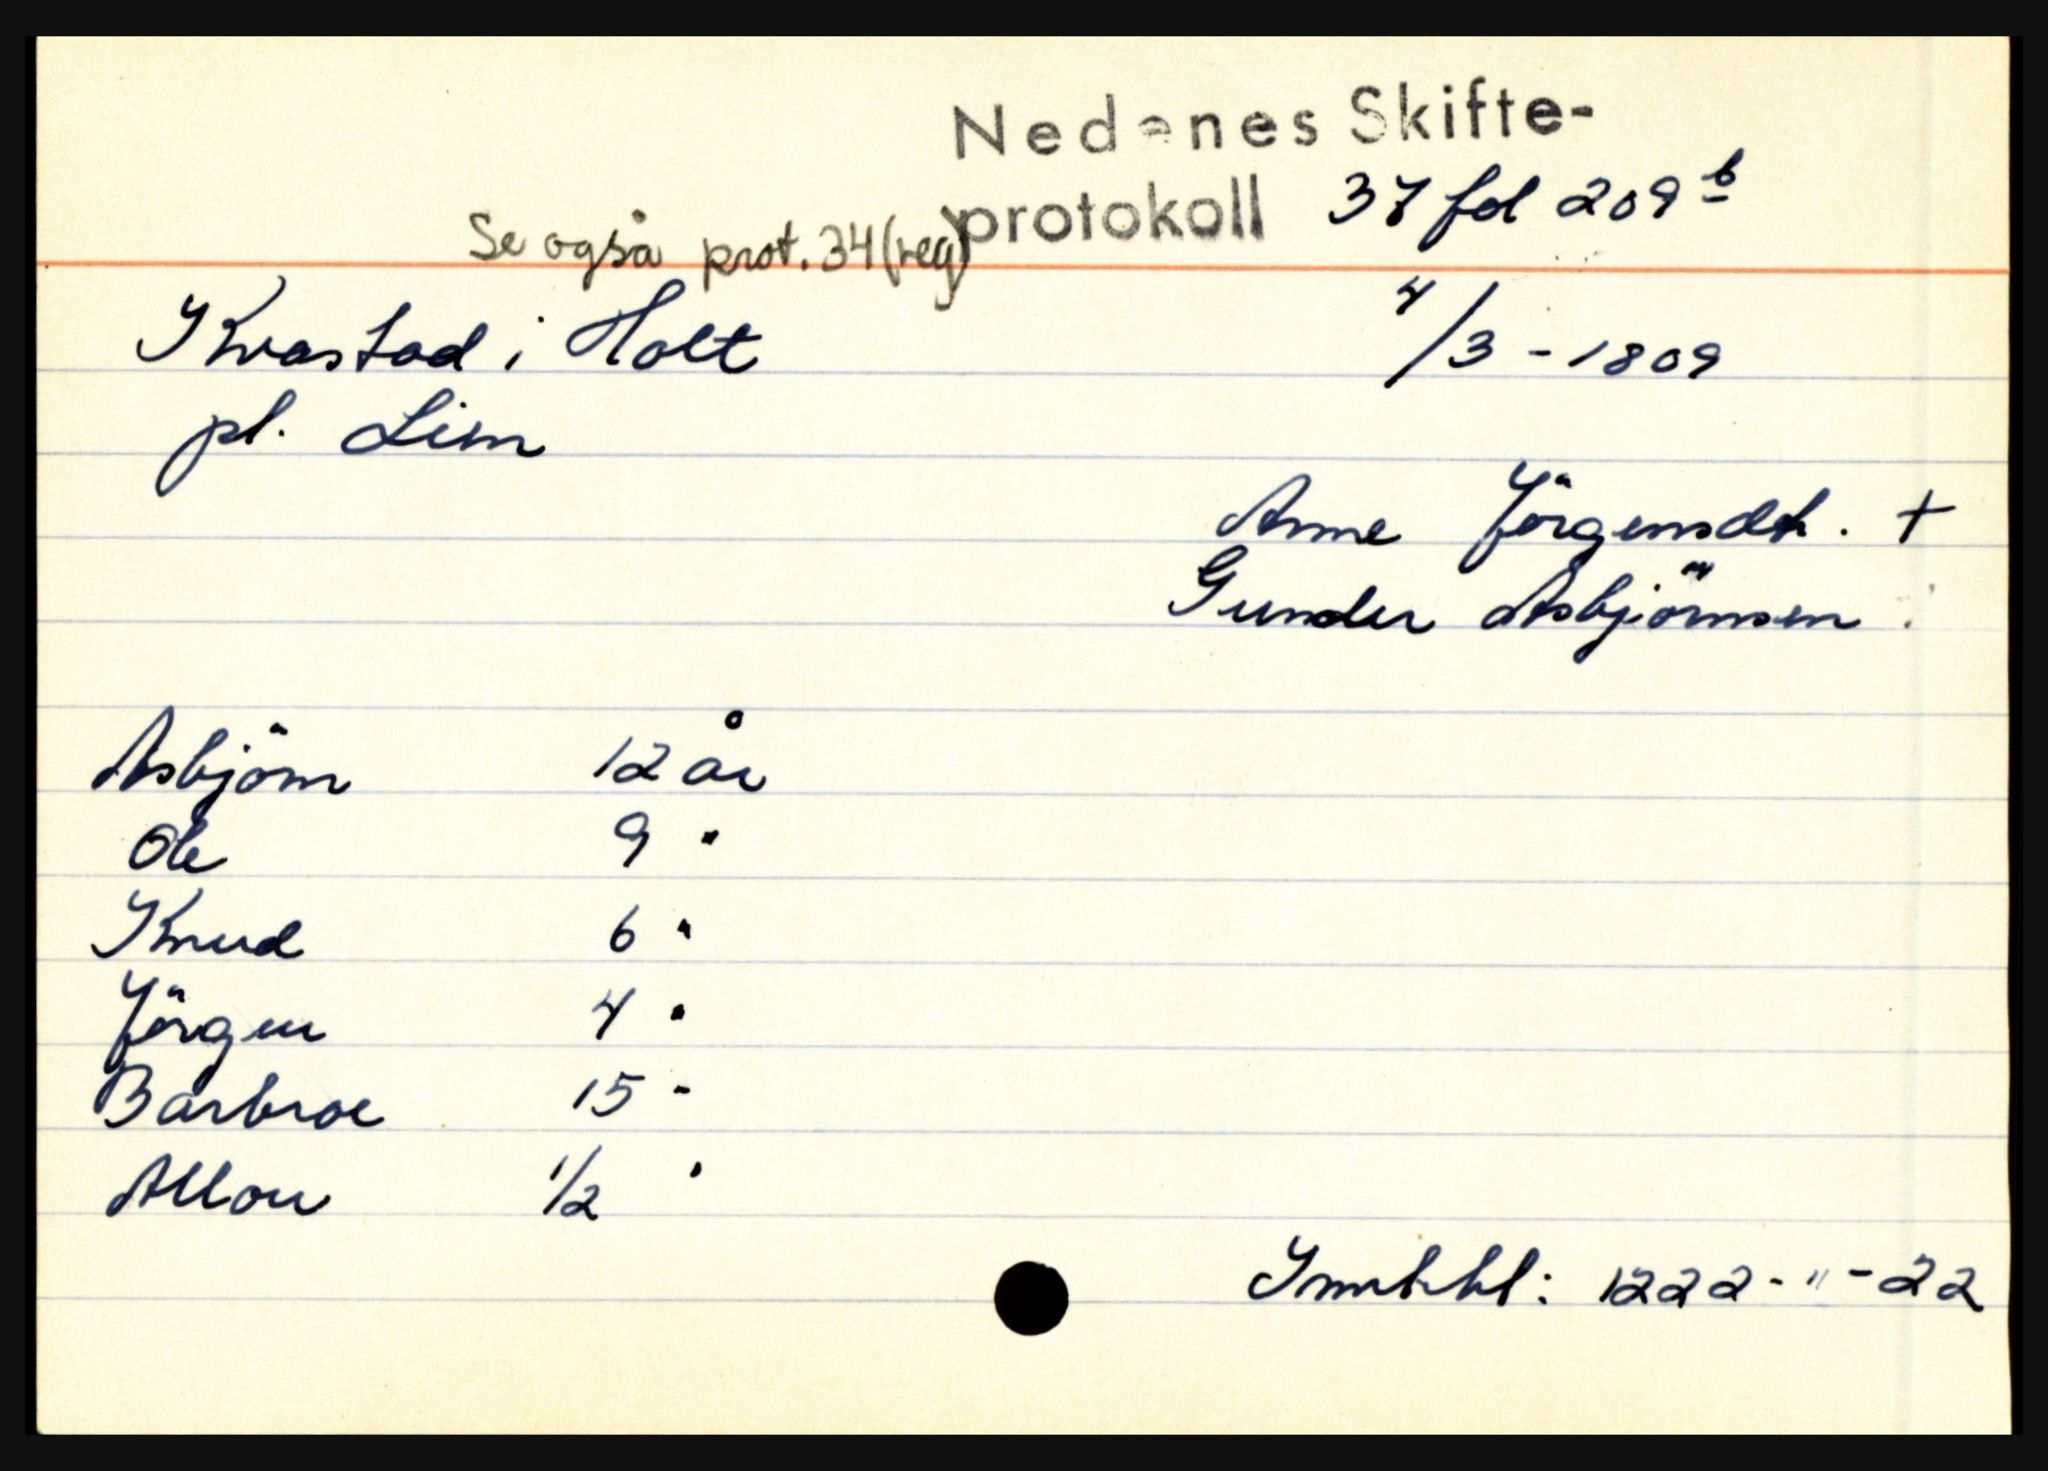 Nedenes Skifte-
protokoll 37 fol 209 b
Se også prot. 34 (reg)
Kvastad i Holt 4/3 - 1809
pl. Lien
Anne Jörgensdt. +
Gunder Asbjörnsen
Asbjörn 12 år
Ole 9 "
Knud 6 "
Jörgen 4 "
Barbroe 15 -
Allou 1/2 "
1222 - " - 22